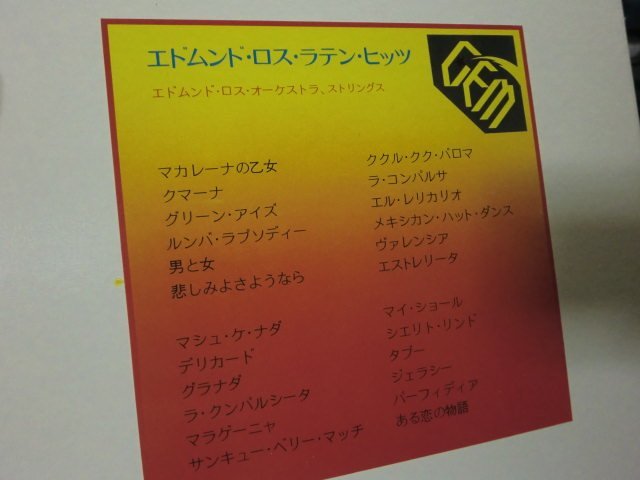 エドムンド・ロス・ラテン・ヒッツ
GEM
エドムンド・ロス・オーケストラ、ストリングス
マカレーナの乙女
クマーナ
グリーン・アイズ
ルンバ・ラプソディー
男と女
悲しみよさようなら
ククル・クク・パロマ
ラ・コンパルサ
エル・レリカリオ
メキシカン・ハット・ダンス
ヴァレンシア
エストレリータ
マシュ・ケ・ナダ
デリカード
グラナダ
ラ・クンパルシータ
マラゲーニャ
サンキュー・ベリー・マッチ
マイ・ショール
シエリト・リンド
タブー
ジェラシー
パーフィディア
ある恋の物語